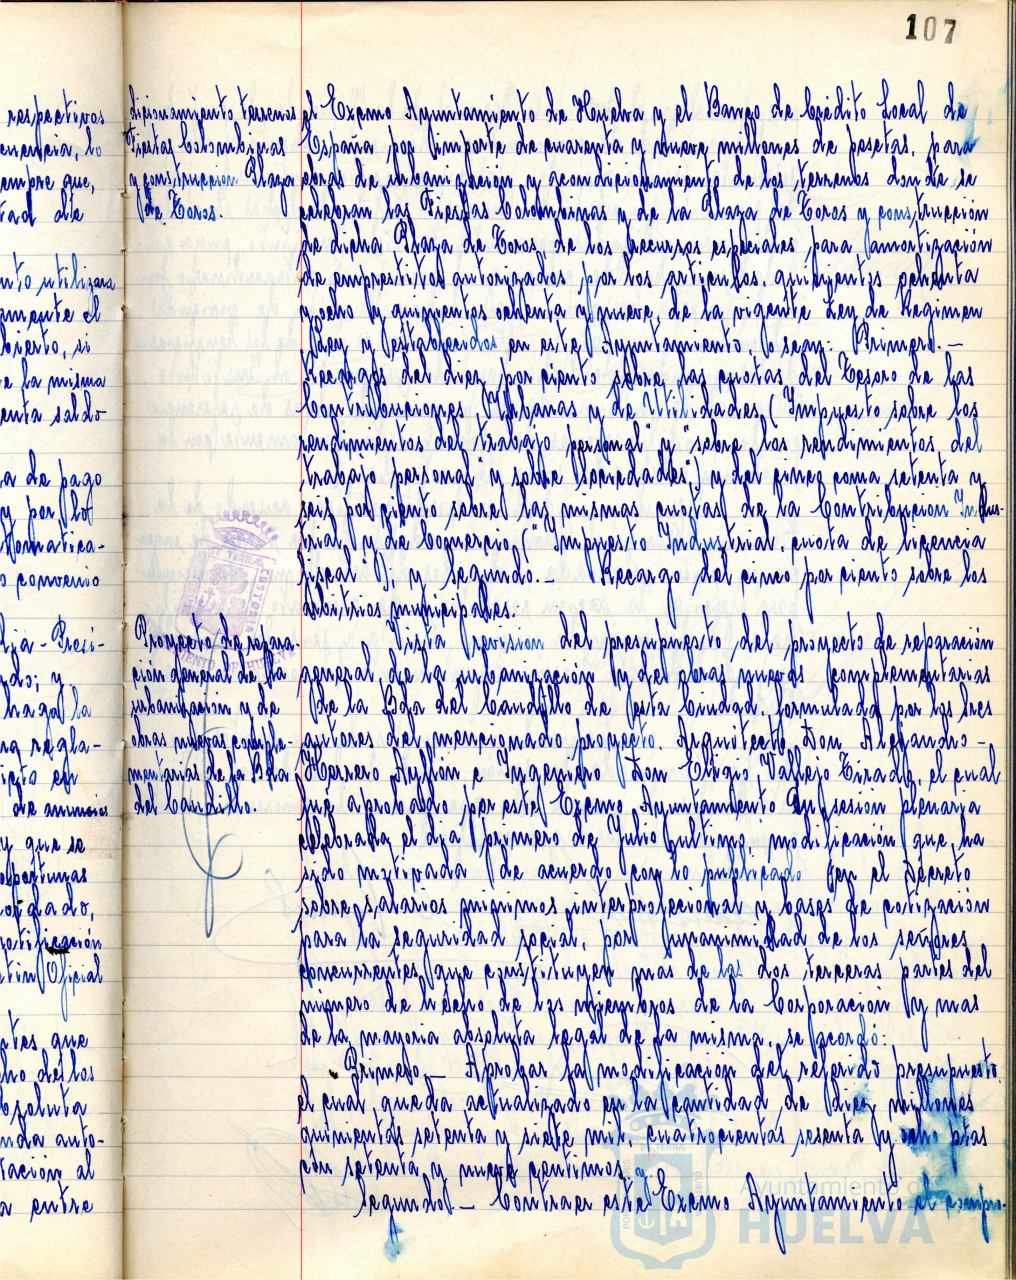 107
respectivos
uencia, lo
empre que,
tad de
nto utilizara
amente el
bierto, si
e la misma
enta saldo
a de pago
y por los
tomatica-
o convenio
Presi-
ndo; y
haga la
ra regla-
icto en
de anuncios
y que se
oportunas
otificación
tín Oficial
rtes que
ho de los
bsoluta
nda auto-
tación al
a entre
dicionamiento terrenos
Fiestas Colombinas
y construccion Plaza
de Toros.
el Excmo Ayuntamiento de Huelva y el Banco de Crédito Local de
España por importe de cuarenta y nueve millones de pesetas, para
obras de urbanización y acondicionamiento de los terrenos donde se
celebran las Fiestas Colombinas y de la Plaza de Toros y construcción
de dicha Plaza de Toros, de los recursos especiales para amortización
de emprestitos autorizados por los articulos, quinientos ochenta
y ocho y quinientos ochenta y nueve, de la vigente Ley de Regimen
y establecidos en este Ayuntamiento, o sean: Primero.-
Recargos del diez por ciento sobre las cuotas del Tesoro de las
Contribuciones, Urbanas y de Utilidades, ("Impuesto sobre los
rendimientos del trabajo personal" y "sobre los rendimientos del
trabajo personal y sobre Sociedades") y del cinco coma setenta y
seis por ciento sobre las mismas cuotas de la Contribucion Indus-
trial y de Comercio ("Impuesto Industrial, cuota de licencia
fiscal"); y Segundo.- Recargo del cinco por ciento sobre los
arbitrios municipales.
Proyecto de repara-
ción general de la
urbanizacion y de
obras nuevas comple-
mentarias de la Bda
del Caudillo.
Vista revision del presupuesto del proyecto de reparación
general de la urbanización y de obras nuevas complementarias
de la Bda del Caudillo de esta Ciudad, formulada por los Sres
autores del mencionado proyecto, Arquitecto Don Alejandro-
Herrero Ayllón e Ingeniero Don Eligio Vallejo Tirado, el cual
fue aprobado por este Excmo. Ayuntamiento en sesión plenaria
celebrada el día primero de Julio ultimo, modificación que ha
sido motivada de acuerdo con lo publicado en el Decreto
sobre salarios minimos interprofecional y bases de cotización
para la seguridad social, por unanimidad de los señores
concurrentes que constituyen mas de las dos terceras partes del
numero de hecho de los miembros de la Corporación y mas
de la mayoria absoluta legal de la misma, se acordó:
Primero.- Aprobar la modificación del referido presupuesto,
el cual queda actualizado en la cantidad de diez millones
quinientas setenta y siete mil, cuatrocientas sesenta y ocho ptas
con setenta y nueve centimos.
Segundo.- Contraer este Excmo Ayuntamiento el compro-
Ayuntamiento de
HUELVA